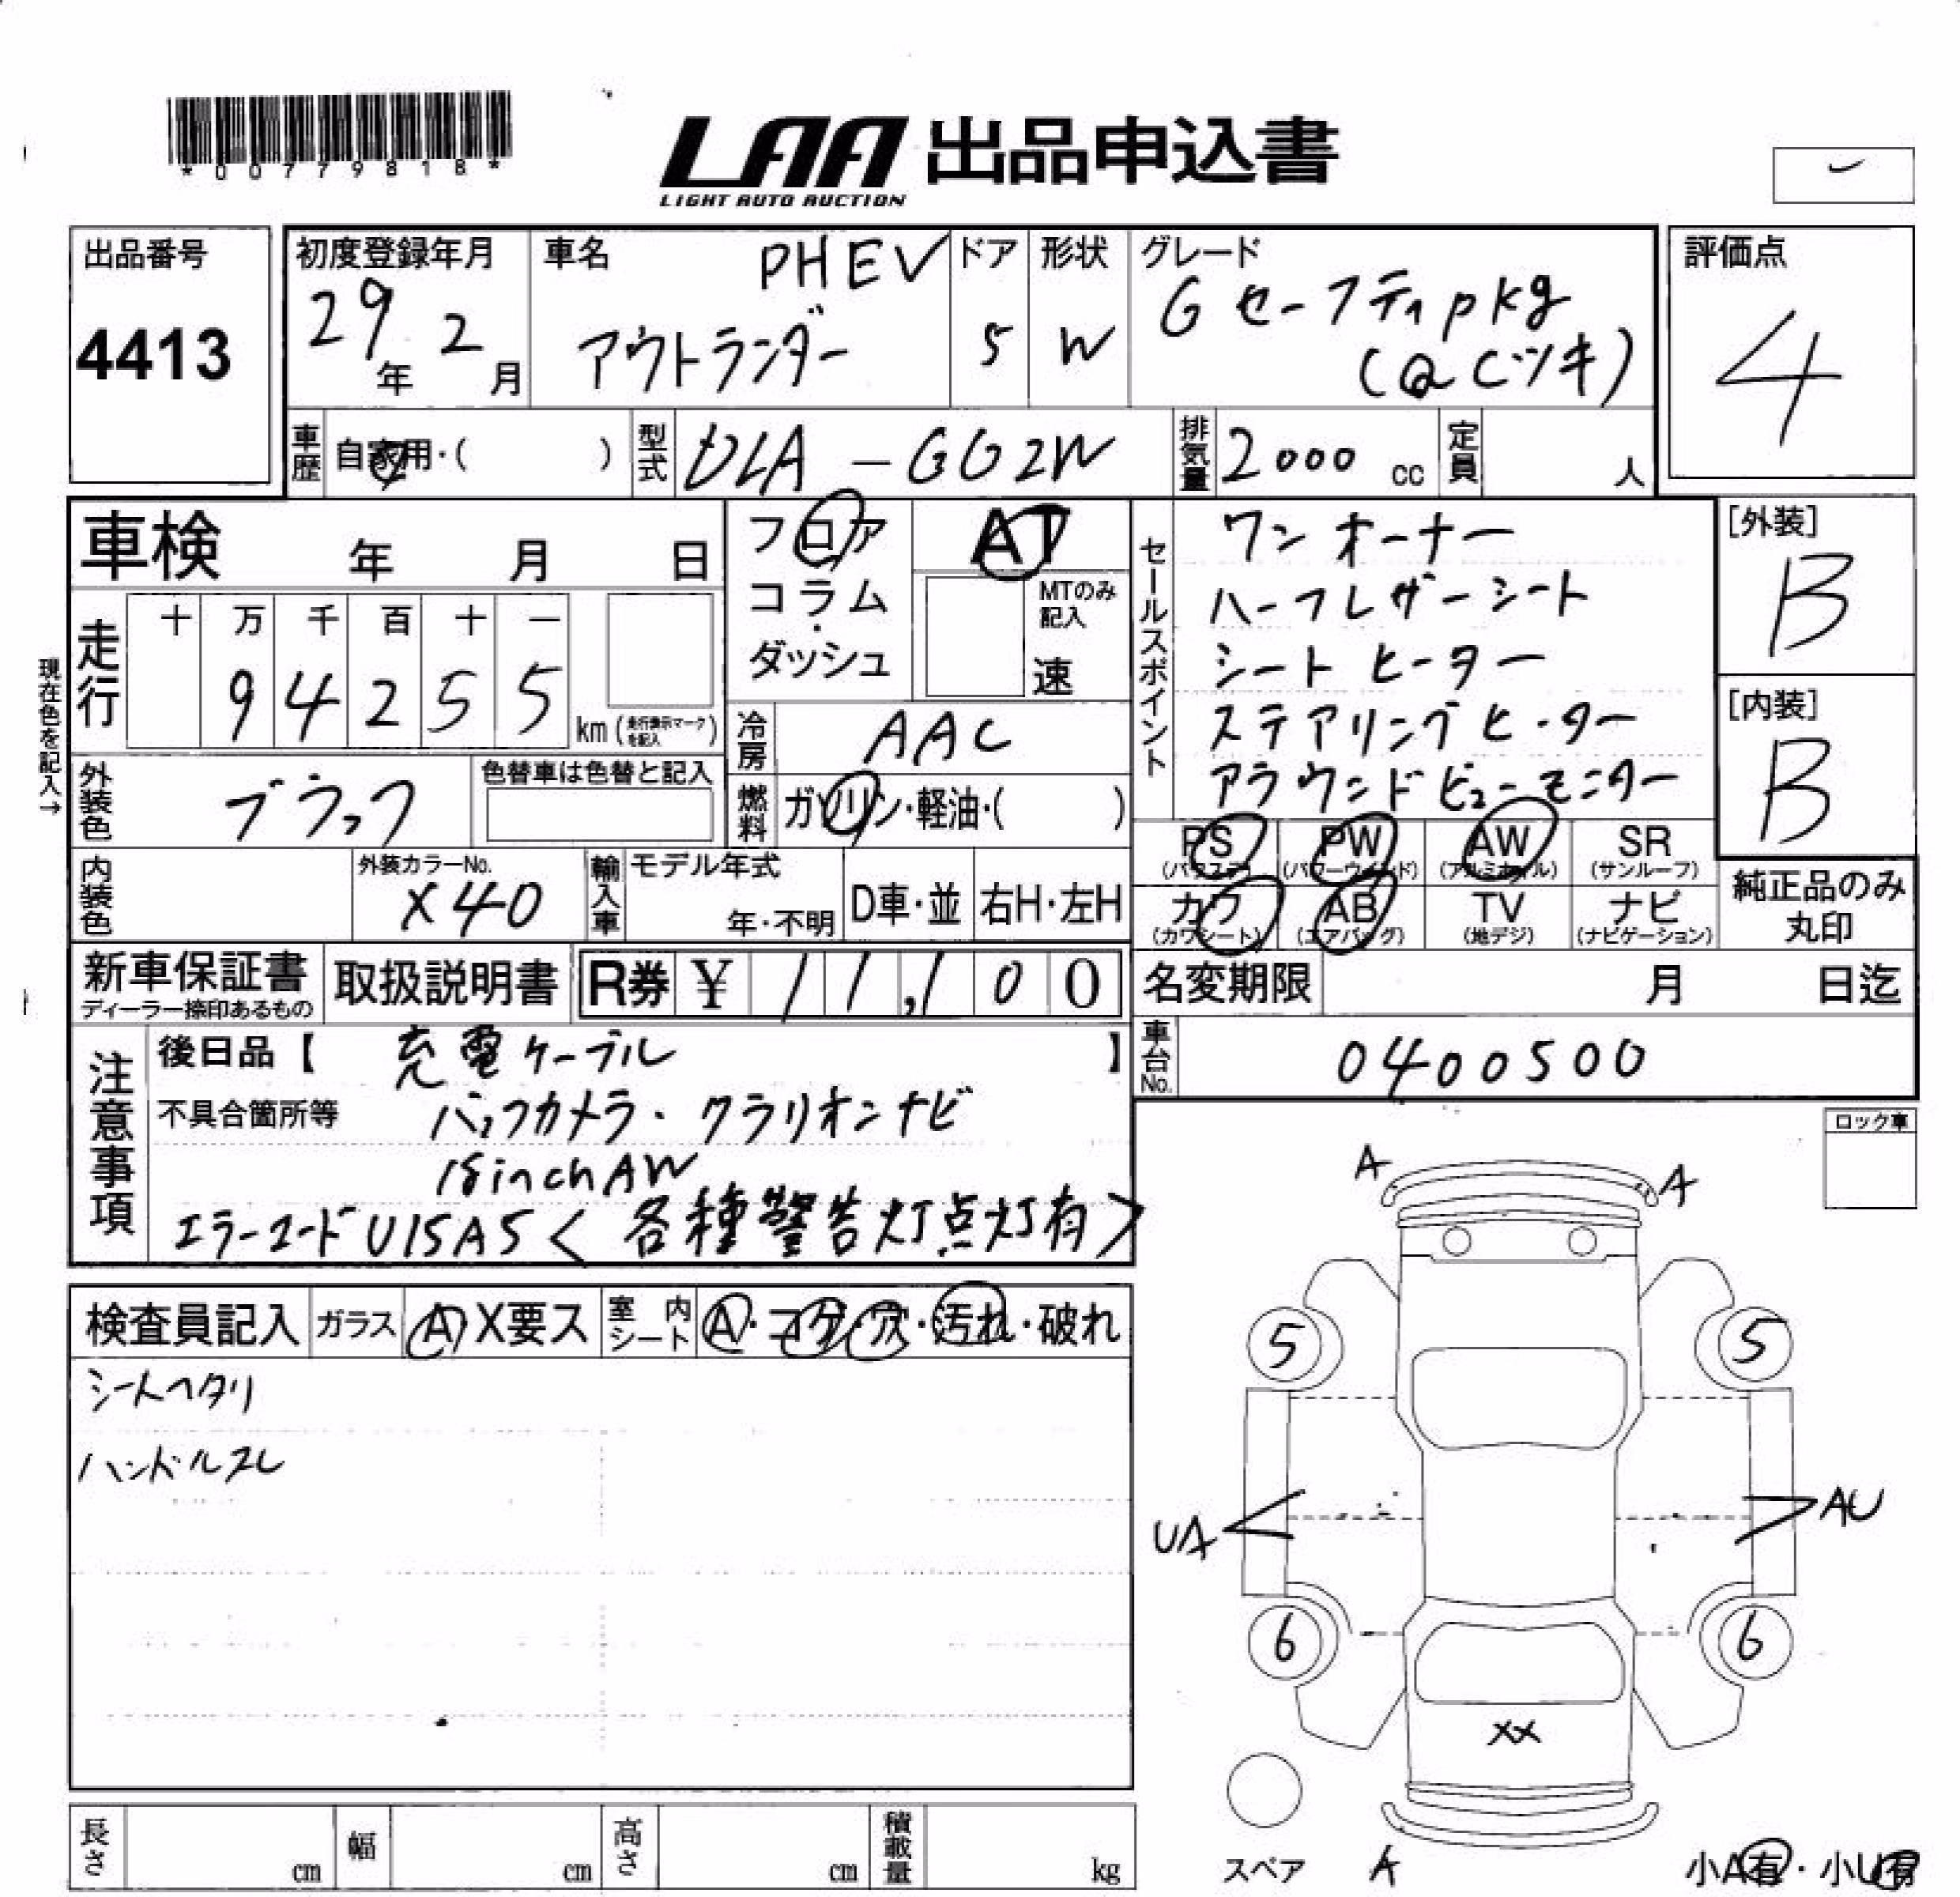 *00779818*
LAA 出品申込書
LIGHT AUTO AUCTION
出品番号
4413
初度登録年月
29年 2月
車名
PHEV
アウトランダー
ドア
5
形状
W
グレード
G セーフティpkg
(QCツキ)
評価点
4
車歴 自家用・( )
型式 DLA-GG2W
排気量 2000 cc
定員 人
車検 年 月 日
フロア
コラム
・
ダッシュ
AT
MTのみ記入
速
走行
十 万 千 百 十 一
9 4 2 5 5
km (走行表示マークを記入)
現在色を記入→
冷房 AAC
外装色 ブラック
色替車は色替と記入
燃料 ガソリン・軽油・( )
内装色
外装カラーNo.
X40
輸入車
モデル年式
年・不明
D車・並
右H・左H
セールスポイント
ワンオーナー
ハーフレザーシート
シートヒーター
ステアリングヒーター
アラウンドビューモニター
[外装]
B
[内装]
B
PS (パワステ)
PW (パワーウィンド)
AW (アルミホイル)
SR (サンルーフ)
カワ (カワシート)
AB (エアバッグ)
TV (地デジ)
ナビ (ナビゲーション)
純正品のみ
丸印
新車保証書
ディーラー捺印あるもの
取扱説明書
R券 ¥ 11,100
名変期限 月 日迄
車台No. 0400500
注意事項
後日品【 充電ケーブル 】
不具合箇所等 バックカメラ・クラリオンナビ
18inchAW
エラーコードU15A5<各種警告灯点灯有>
ロック車
検査員記入
ガラス A X要ス
室内シート A・コゲ・穴・汚れ・破れ
シートヘタリ
ハンドルスレ
A
A
5
5
UA
AU
6
6
XX
スペア
A
小A有・小U有
長さ cm
幅 cm
高さ cm
積載量 kg